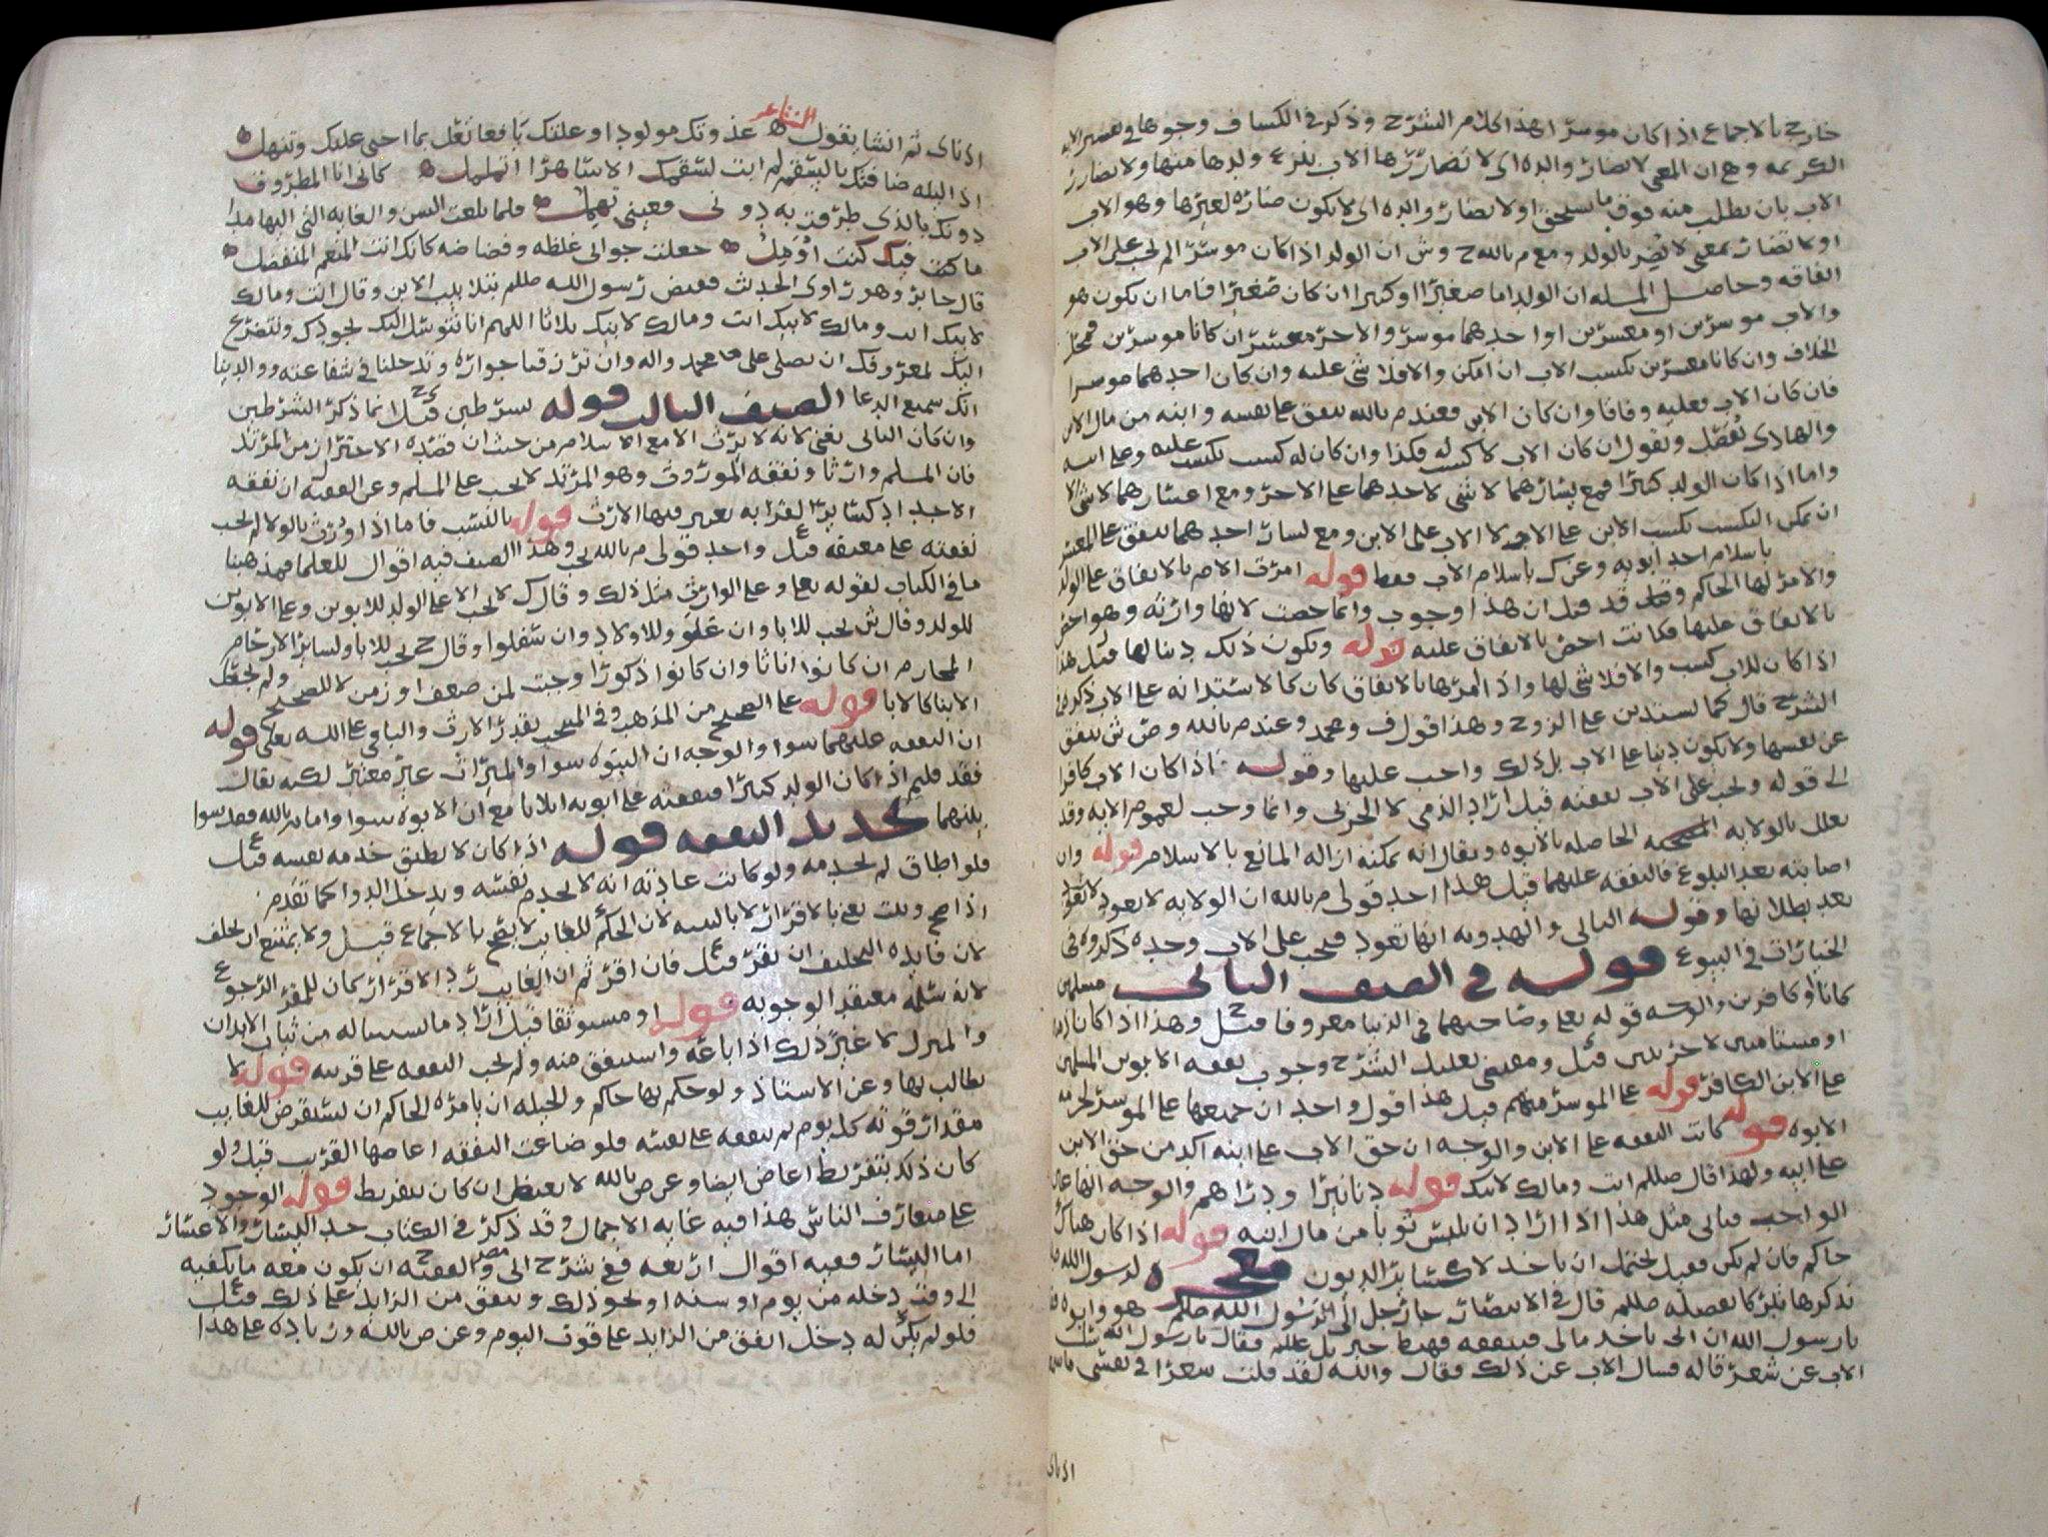 خارج بالاجماع اذا كان موسرا هذا كلام الشرح وذكر في الكشاف وجوها في تفسير الايه
الكريمه وهي ان المعنى لا تضار والده اي لا تضار زوجها الاب بنزع ولدها منها ولا تضارر
الاب بان تطلب منه فوق ما تستحق او لا تضار والده اي لا يكون ضاره لغيرها وهو الاب
او لا تضار بمعنى لا يضر بالولد ومع م بالله ح وش ان الولد اذا كان موسرا لم يجب على الاب
انفاقه وحاصل المسله ان الولد اما صغيرا او كبيرا ان كان صغيرا فاما ان يكون هو
والاب موسرين او معسرين او احدهما موسر والاخر معسر ان كانا موسرين فمحل
الخلاف وان كانا معسرين تكسب الاب ان امكن والا فلا شي عليه وان كان احدهما موسرا
فان كان الاب فعليه وفاقا وان كان الابن فعند م بالله ينفق على نفسه وابنه من مال الابن
والهادي يفصل ويقول ان كان الاب لا كسب له فكذا وان كان له كسب تكسب عليه وعلى ابنه
واما اذا كان الولد كبيرا فمع يسارهما لا شي لاحدهما على الاخر ومع اعسارهما لا شي الا
ان يمكن التكسب تكسب الابن على الاب لا الاب على الابن ومع يسار احدهما ينفق على المعسر
باسلام احد ابويه وعن ك باسلام الاب فقط قوله امرت الام بالانفاق على الولد
والامر لها الحاكم وقيل قد قيل ان هذا وجوب وانما خصت لانها وارثه وهو اخص
بالانفاق عليها فكانت اخص بالانفاق عليه قوله ويكون ذلك دينا لها قيل هذا
اذا كان للاب كسب والا فلا شي لها واذا امرها بالانفاق كان كالاستدانه على الاب ذكره في
الشرح قال كما تستدين على الزوج وهذا قول ف ومحمد وعند م بالله وص ش تنفق
عن نفسها ولا يكون دينا على الاب بل ذلك واجب عليها وقوله اذا كان الاب كافرا
الى قوله ويجب على الاب نفقته قيل اراد الذمي لا الحربي وانما وجب لعموم الايه وقد
يعلل بالولايه الصحيحه الحاصله بالابوه ويقال انه يمكنه ازاله المانع بالاسلام قوله وان
اصابته بعد البلوغ فالنفقه عليهما قيل هذا احد قولي م بالله ان الولايه لا تعود
بعد بطلانها وقوله الثاني والهدويه انها تعود فيجب على الاب وحده ذكروه في
الخيارات في البيوع قوله في الصنف الثاني مسلمين
كانا او كافرين والوجه قوله تعلى وصاحبهما في الدنيا معروفا قيل ح وهذا اذا كانا ذميين
او مستامنين لا حربيين قيل ومقتضى تعليل الشرح وجوب نفقه الابوين المسلمين
على الابن الكافر قوله على الموسر منهم قيل هذا قول واحد ان جميعها على الموسر لحرمه
الابوه قوله كانت النفقه على الابن والوجه ان حق الاب على ابنه اكد من حق الابن
على ابيه ولهذا قال صللم انت ومالك لابيك قوله دنانيرا ودراهم والوجه انها على
الواجب فياتي مثل هذا اذا اراد ان يلبس ثوبا من مال ابنه قوله اذا كان هناك
حاكم فان لم يكن فقيل يحتمل ان ياخذ لا كسائر الديون معجزه لرسول الله
نذكرها تبركا بفضله صللم قال في الانتصار جا رجل الى رسول الله صللم هو وابوه
يا رسول الله ان ابي ياخذ مالي فينفقه فهبط جبريل علىه فقال يا رسول الله سل
الاب عن شعر قاله فسال الاب عن ذلك فقال والله لقد قلت شعرا في نفسي ما سمعته
اذناى
اذناى ثم انشا يقول الشاعر غذوتك مولودا وعلتك يافعا تعل بما احنى عليك وتنهل
اذا ليله ضافتك بالسقم لم ابت لسقمك الا ساهرا اتململ كاني انا المطروق
دونك بالذي طرقت به دوني فعيني تهمل فلما بلغت السن والغايه التي اليها مدا
ما كنت فيك كنت اؤمل جعلت جوابي غلظه وفضاضه كانك انت المنعم المتفضل
قال جابر وهو راوي الحديث فقبض رسول الله صللم بتلابيب الابن وقال انت ومالك
لابيك انت ومالك لابيك انت ومالك لابيك ثلاثا اللهم انا نتوسل اليك بجودك ونتضرع
اليك بمعروفك ان تصلي على محمد واله وان ترزقنا جواره وتدخلنا في شفاعته ووالدينا
انك سميع الدعا الصنف الثالث قوله بشرطين قيل ح انما ذكر الشرطين
وان كان الثاني يغني لانه لا يرث الا مع الاسلام من حيث ان قصده الاحتراز من المرتد
فان المسلم وارثا ونفقه الموروث وهو المرتد لا تجب على المسلم وعن الفقيه ان نفقه
الاجداد كسائر القرابه يعتبر فيها الارث قوله بالنسب فاما اذا ورث بالولا لم تجب
نفقته على معتقه قيل واحد قولي م بالله تجب وهذا الصنف فيه اقوال للعلما فمذهبنا
ما في الكتاب لقوله تعلى وعلى الوارث مثل ذلك وقال ك لا تجب الا على الولد للابوين وعلى الابوين
للولد وقال ش تجب للابا وان علوا وللاولاد وان سفلوا وقال ح تجب للابا ولسائر الارحام
المحارم ان كانوا اناثا وان كانوا ذكورا وجبت لمن ضعف او زمن لا للصحيح ولم يجعل
الابنا كالابا قوله على الصحيح من المذهب وفي المنتخب بقدر الارث والباقي على الله تعلى قوله
ان النفقه عليهما سوا والوجه ان البنوه سوا والميراث غير معتبر لكنه يقال
فقد قلتم اذا كان الولد كبيرا فنفقته على ابويه اثلاثا مع ان الابوه سوا واما م بالله فقد سوا
بينهما تحديد النفقه قوله اذا كان لا يطيق خدمه نفسه قيل
فلو اطاق لم تجب خدمه ولو كانت عادته انه لا يخدم نفسه ويدخل الدوا كما تقدم
اذا صح وثبت يعني بالاقرار لا بالبينه لان الحكم للغايب لا يصح بالاجماع قيل ولا يمتنع ان يحلف
لان فايده التحليف ان يقر قيل فان اقر ثم ان الغايب رد الاقرار كان للمقر الرجوع
لانه سلمه معتقد الوجوبه قوله او مستوثقا قيل اراد ما يستثنى له من ثياب الابدان
والمنزل لا غير ذلك اذا باعه واستنفق منه ولم تجب النفقه على قريبه قوله لا
يطالب بها وعن الاستاذ ولو حكم بها حاكم والحيله ان يامره الحاكم ان يستقرض للغايب
مقدار قوته كل يوم ثم ينفقه على نفسه فلو ضاعت النفقه اعاضها القريب قيل ولو
كان ذلك بتفريط اعاض ايضا وعن ص بالله لا يعيض ان كان بتفريط قوله الوجود
على متعارف الناس هذا فيه غايه الاجمال وقد ذكر في الكتاب حد اليسار والاعسار
اما اليسار ففيه اقوال اربعه ففي شرح ابي مضر والفقيه ح ان يكون معه ما يكفيه
الى وقت دخله من يوم او سنه او نحو ذلك وينفق من الزايد على ذلك قيل
فلو لم يكن له دخل انفق من الزايد على قوت اليوم وعن ص بالله وزياده على هذا